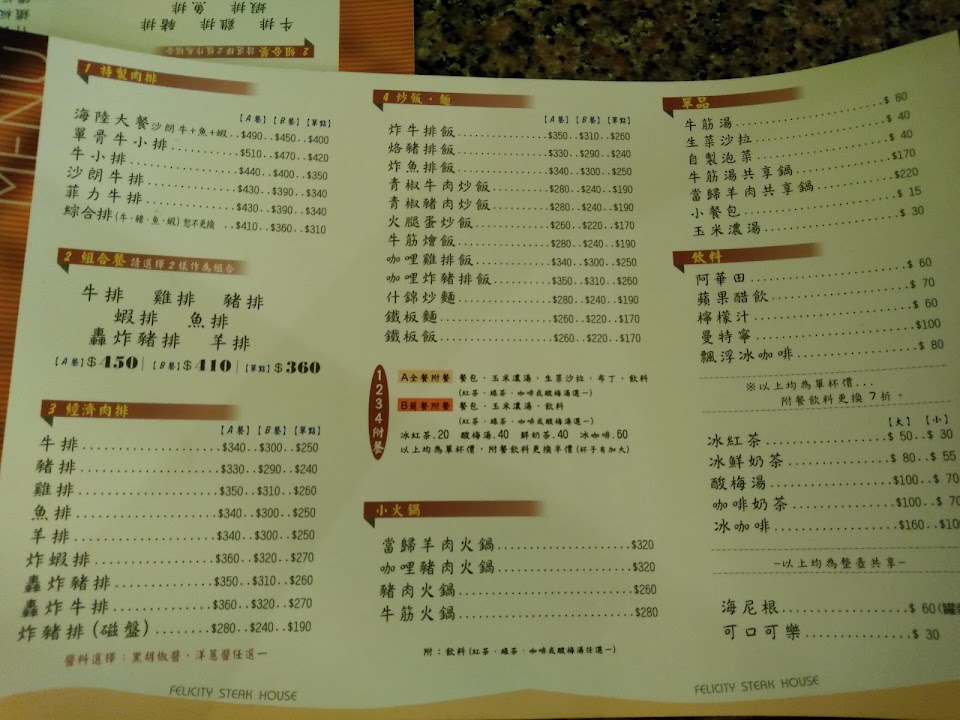 鱈排
豬排 雞排 牛排
2 組合餐 請選擇2樣作為組合
1 特製肉排
【A餐】【B餐】【單點】
海陸大餐 沙朗牛+魚+蝦..$490..$450..$400
單骨牛小排........$510..$470..$420
牛小排............$440..$400..$350
沙朗牛排..........$430..$390..$340
菲力牛排..........$430..$390..$340
綜合排(牛、豬、魚、蝦)恕不更換 ..$410..$360..$310
2 組合餐 請選擇2樣作為組合
牛排 雞排 豬排
蝦排 魚排
轟炸豬排 羊排
【A餐】$450|【B餐】$410|【單點】$360
3 經濟肉排
【A餐】【B餐】【單點】
牛排..............$340..$300..$250
豬排..............$330..$290..$240
雞排..............$350..$310..$260
魚排..............$340..$300..$250
羊排..............$340..$300..$250
炸蝦排............$360..$320..$270
轟炸豬排..........$350..$310..$260
轟炸牛排..........$360..$320..$270
炸豬排(磁盤)......$280..$240..$190
醬料選擇：黑胡椒醬、洋蔥醬任選一
FELICITY STEAK HOUSE
4 炒飯、麵
【A餐】【B餐】【單點】
炸牛排飯..........$350..$310..$260
烙豬排飯..........$330..$290..$240
炸魚排飯..........$340..$300..$250
青椒牛肉炒飯......$280..$240..$190
青椒豬肉炒飯......$280..$240..$190
火腿蛋炒飯........$260..$220..$170
牛筋燴飯..........$280..$240..$190
咖哩雞排飯........$340..$300..$250
咖哩炸豬排飯......$350..$310..$260
什錦炒麵..........$280..$240..$190
鐵板麵............$260..$220..$170
鐵板飯............$260..$220..$170
1234附餐
A全餐附餐 餐包、玉米濃湯、生菜沙拉、布丁、飲料
(紅茶、綠茶、咖啡或酸梅湯選一)
B簡餐附餐 餐包、玉米濃湯、飲料
(紅茶、綠茶、咖啡或酸梅湯選一)
冰紅茶.20 酸梅湯.40 鮮奶茶.40 冰咖啡.60
以上均為單杯價，附餐飲料更換半價(杯子有加大)
小火鍋
當歸羊肉火鍋..................$320
咖哩豬肉火鍋..................$320
豬肉火鍋......................$260
牛筋火鍋......................$280
附：飲料(紅茶、綠茶、咖啡或酸梅湯任選一)
單品
牛筋湯....................$ 80
生菜沙拉..................$ 40
自製泡菜..................$ 40
牛筋湯共享鍋..............$170
當歸羊肉共享鍋............$220
小餐包....................$ 15
玉米濃湯..................$ 30
飲料
阿華田....................$ 60
蘋果醋飲..................$ 70
檸檬汁....................$ 60
曼特寧....................$100
飄浮冰咖啡................$ 80
※以上均為單杯價...
附餐飲料更換7折。
【大】【小】
冰紅茶..............$ 50..$ 30
冰鮮奶茶............$ 80..$ 55
酸梅湯..............$100..$ 70
咖啡奶茶............$100..$ 70
冰咖啡..............$160..$10
-以上均為整壺共享-
海尼根..............$ 60(罐
可口可樂............$ 30
FELICITY STEAK HOUSE